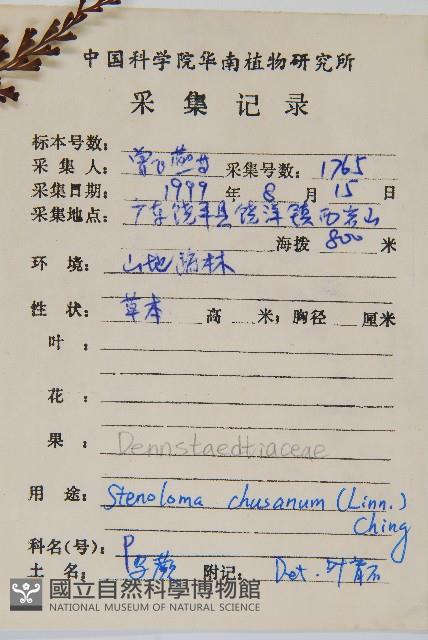 中国科学院华南植物研究所
采集记录
标本号数:
采集人: 曾飞燕 采集号数: 1765
采集日期: 1999 年 8 月 15 日
采集地点: 广东饶平县饶洋镇西岩山
海拨 800 米
环境: 山地 林
性状: 草本 高 米; 胸径 厘米
叶:
花:
果: Dennstaedtiaceae
用途: Stenoloma chusanum (Linn.)
Ching
科名(号): P
土名: 蕨 附记: Det. 叶
國立自然科學博物館
NATIONAL MUSEUM OF NATURAL SCIENCE